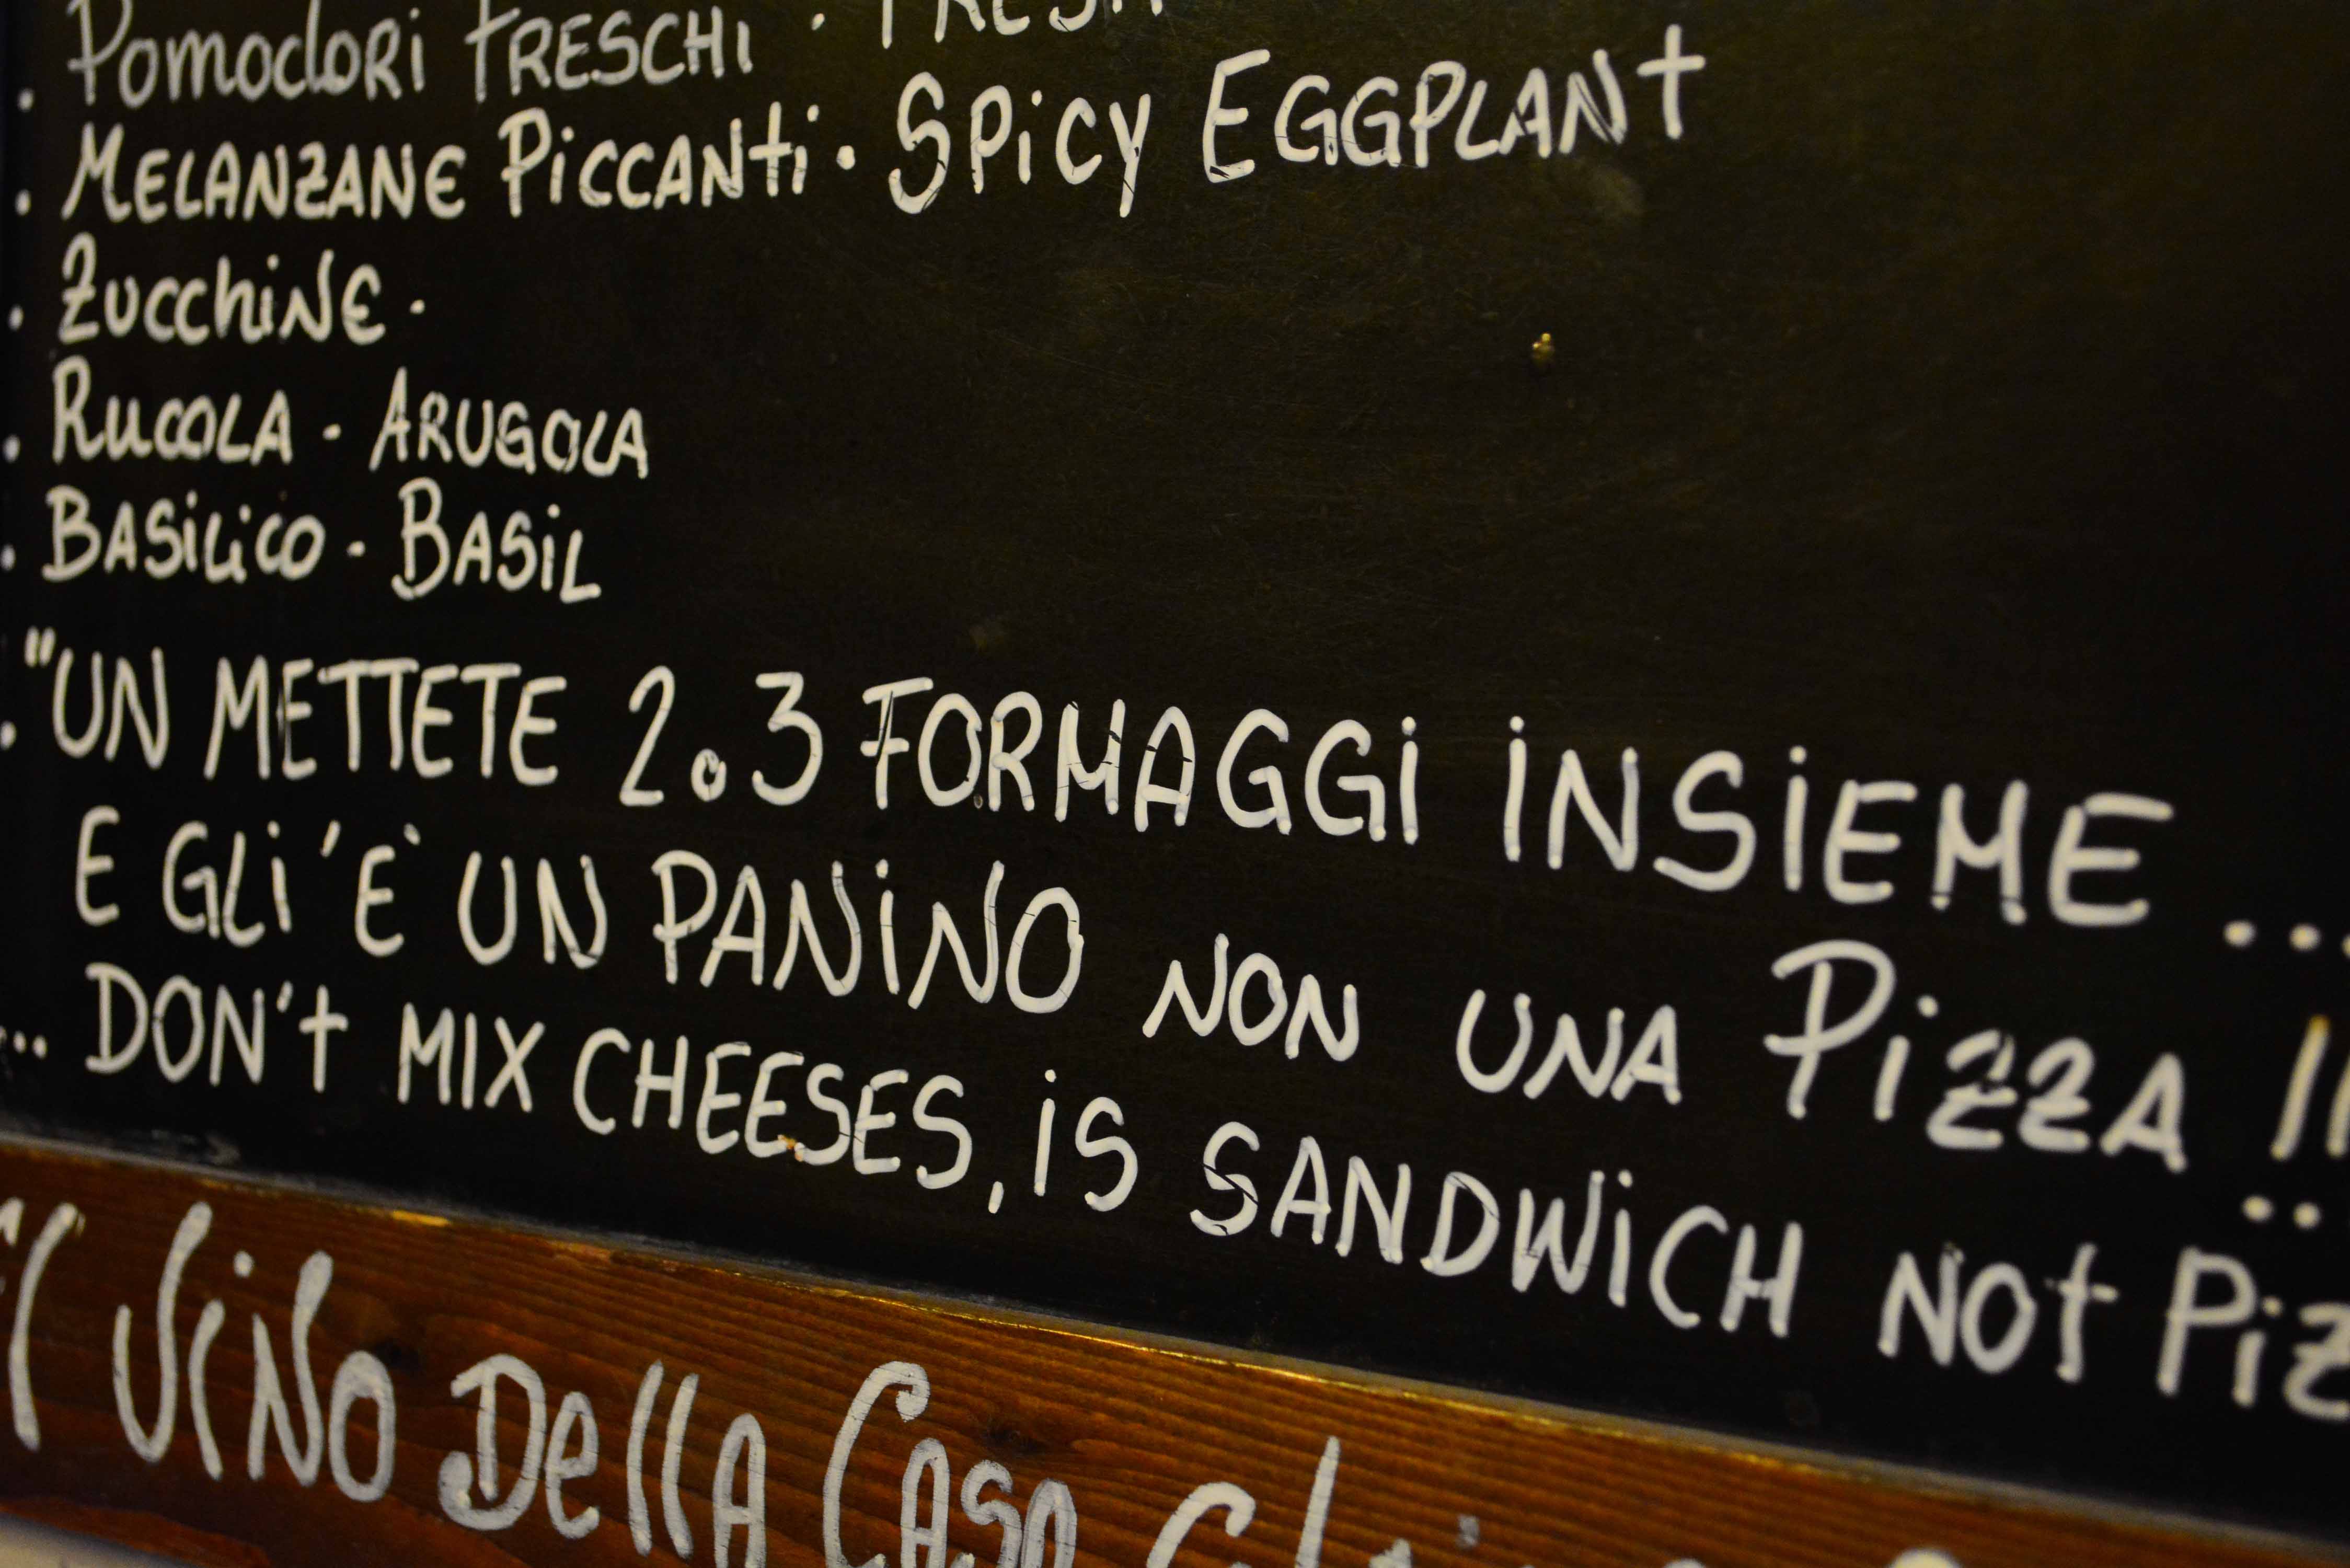 . Pomodori FRESCHI . FRESH
. MELANZANE PiCCANti. SPiCY EGGPLANt
. ZucchiNE.
. RucoLA - ARUGOLA
. BASiLico - BASiL
. "UN METTETE 2.3 FORMAGGi iNSiEME...
E GLi 'E` UN PANiNO NON UNA PiZZA !!
... DON't MIX CHEESES, iS SANDWiCH NOt Piz
il ViNo DellA CasA